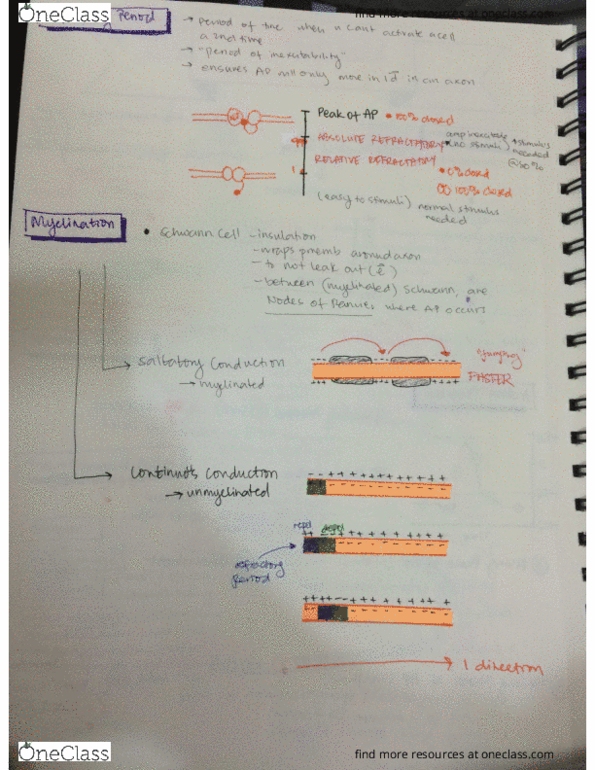 OneClass
find more resources at oneclass.com
Period
→ period of time when u cant activate a cell
a 2nd time
→ "period of inexcitability"
→ ensures AP will only move in 1 in an axon
Peak of AP • 100% closed
ABSOLUTE REFRACTORY
(no stimuli)
stimulus
needed
RELATIVE REFRACTORY
• 0% closed
100% closed
(easy to stimuli) normal stimulus
needed
Myelination
• Schwann Cell - insulation
- wraps pmemb around axon
- to not leak out
- between (myelinated) Schwann, are
Nodes of Ranvier where AP occurs
→ Saltatory Conduction
→ myelinated
"jumping"
FASTER
→ Continuous Conduction
→ unmyelinated
repol
depol
refractory
period
1 direction
OneClass
find more resources at oneclass.com